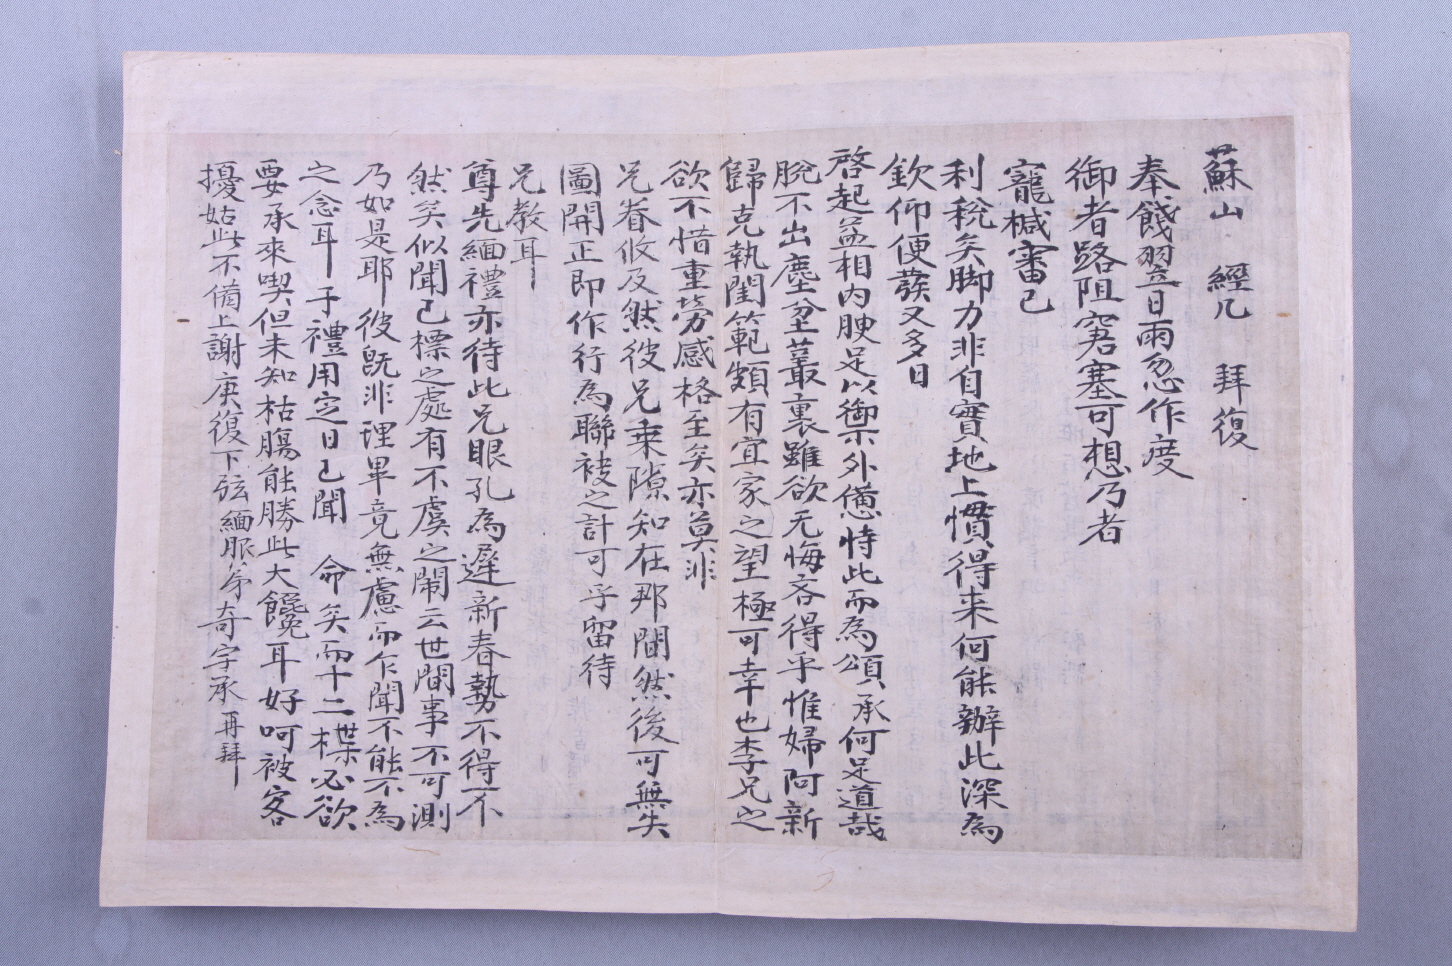 蘇山 經几 拜復
奉餞翌日雨忽作度
御者路阻窘塞可想乃者
寵椷審已
利稅矣脚力非自實地上慣得来何能辦此深為
欽仰便蕟又多日
啓起益相内腴足以禦外憊恃此而為頌承何足道哉
脫不出塵坌叢裏雖欲无悔吝得乎惟婦阿新
歸克執閨範頗有宜家之望極可幸也李兄之
欲不惜重勞感格至矣亦莫非
兄眷攸及然彼兄乘隙知在那間然後可無失
圖開正即作行為聯袂之計可乎留待
兄教耳
尊先緬禮亦待此兄眼孔為遲新春勢不得不
然矣似聞已標之處有不虞之鬧云世間事不可測
乃如是耶彼旣非理畢竟無慮而乍聞不能不為
之念耳子禮用定日已聞 命矣而十二楪必欲
要承來喫但未知枯膓能勝此大饞耳好呵被客
擾姑此不備上謝 庚復下弦緬服弟奇宇承再拜